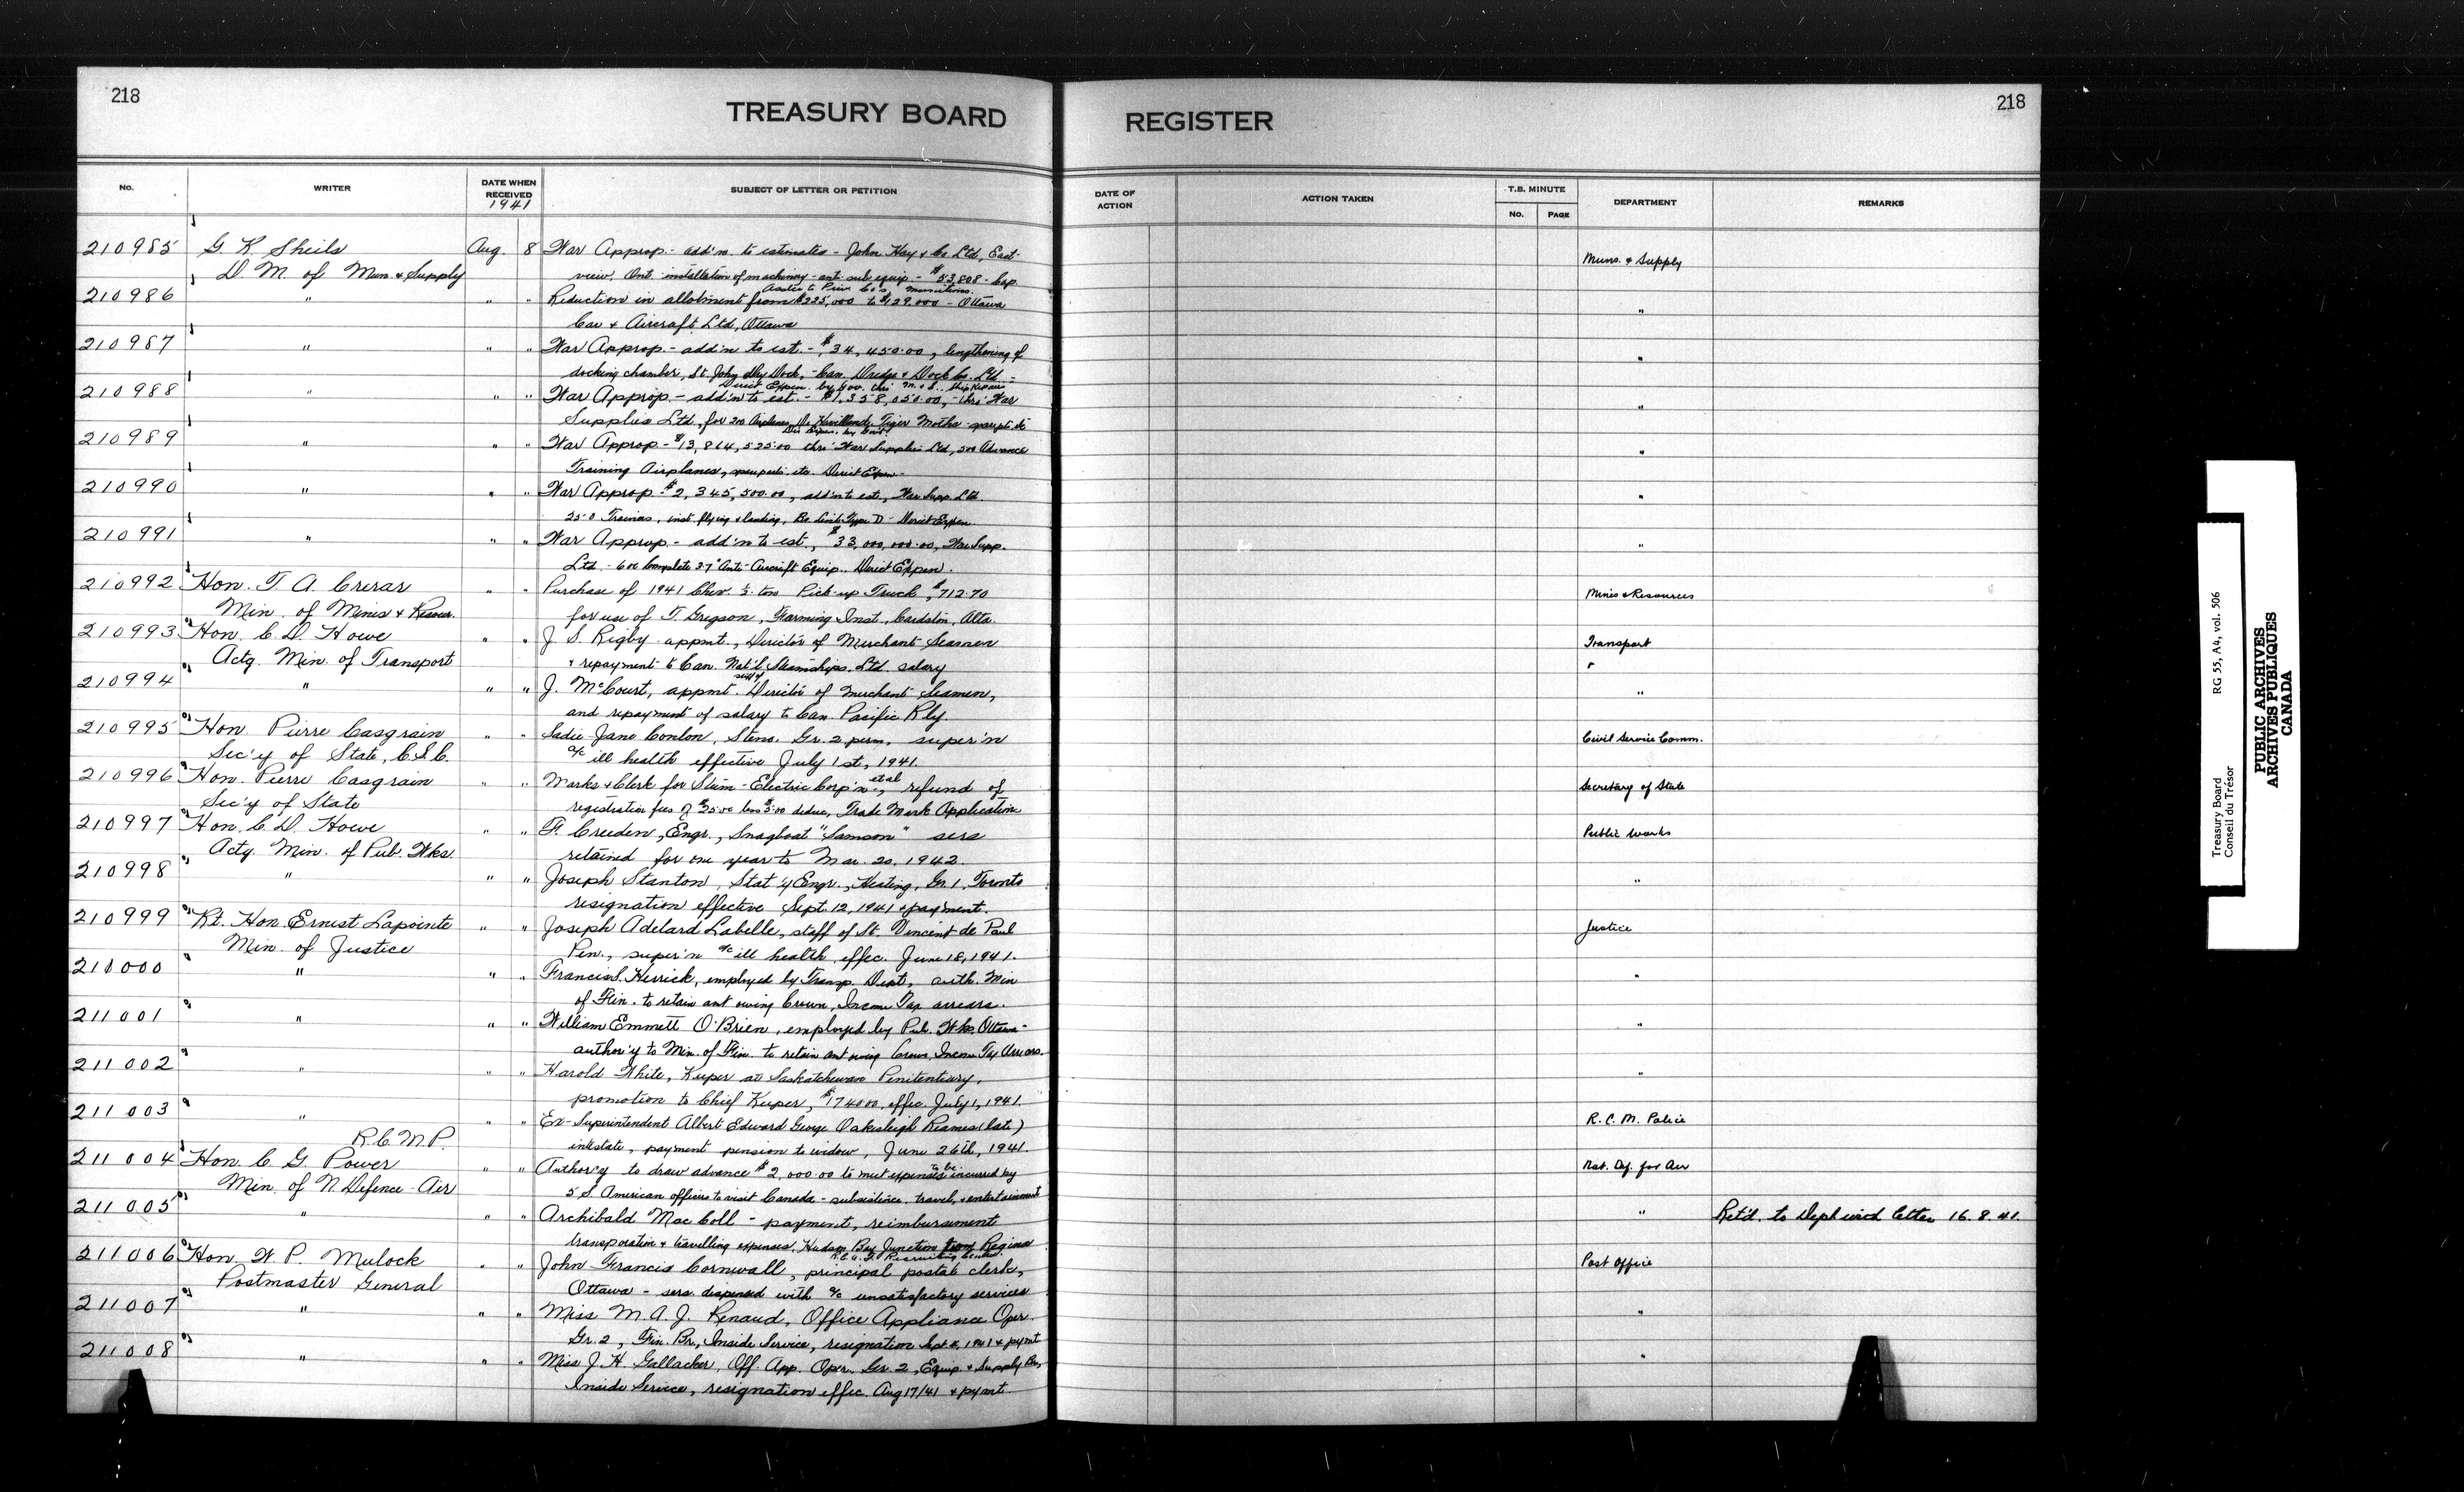 218
TREASURY BOARD
REGISTER
218
No.
WRITER
DATE WHEN RECEIVED
1941
SUBJECT OF LETTER OR PETITION
DATE OF ACTION
ACTION TAKEN
T.B. MINUTE
No.
PAGE
DEPARTMENT
REMARKS
210985 G. K. Sheils Aug. 8 War Approp. - add'n. to estimates - John Hay & Co Ltd, East- Muns. & Supply
D. M. of Mun. & Supply view, Ont. installation of machinery - ant. sub equip - $53,808 - Cap.
Assist. to Priv. Co's munitions.
210986 " " " Reduction in allotment from $225,000 to $129,000 - Ottawa "
Car & Aircraft Ltd, Ottawa
210987 " " " War Approp. - add'n to est. - $34,450.00, lengthening of "
docking chamber, St. John Dry Dock, - Can. Dredge & Dock Co. Ltd -
Direct Expen. by Gov. thr' M. & S. Ship Repairs
210988 " " " War Approp. - add'n to est. - $1,358,050.00, - thr' War "
Supplies Ltd, for 200 Airplanes De Havilland Tiger Moths - spare pts etc
Dir Expen. by Govt.
210989 " " " War Approp - $13,864,525.00 thr' War Supplies Ltd, 500 Advance "
Training Airplanes, spare parts. etc. Direct Expen.
210990 " " " War Approp - $2,345,500.00, add'n to est., War Supp. Ltd. "
250 Trainers, inst flying & landing, Re. Link Type D - Direct Expen
210991 " " " War Approp. - add'n to est., $33,000,000.00, War Supp. "
Ltd. - 600 Complete 37" Anti-Aircraft Equip.. Direct Expen.
210992 Hon. T. A. Crerar " " Purchase of 1941 Chev. ½ ton Pick-up Truck, $712.70 Mines & Resources
Min. of Mines & Resour. for use of T. Gregson, Farming Inst., Cardston, Alta.
210993 Hon. C. D. Howe " " J. S. Rigby appmt., Director of Merchant Seamen Transport
Actg. Min. of Transport & repayment to Can. Nat'l Steamships. Ltd. salary "
210994 " " " J. McCourt, appmt. Director of Merchant Seamen, "
and repayment of salary to Can. Pacific Rly.
210995 Hon Pierre Casgrain " " Sadie Jane Conlon, Steno. Gr. 2 perm. super'n Civil Service Comm.
Sec'y of State, C.S.C. a/c ill health effective July 1st, 1941.
210996 Hon. Pierre Casgrain " " Marks & Clerk for Stum-Electric Corp'n et al, refund of Secretary of State
Sec'y of State registration fees of $25.00 less $5.00 deduc, Trade Mark Application
210997 Hon. C. D. Howe " " F. Creeden, Engr., Snagboat "Samson" sers Public Works
Actg. Min. of Pub. Wks. retained for one year to Mar. 20, 1942.
210998 " " " Joseph Stanton, Stat'y Engr., Heating, Gr. 1, Toronto "
resignation effective Sept. 12, 1941 & payment.
210999 Rt. Hon. Ernest Lapointe " " Joseph Adelard Labelle, staff of St. Vincent de Paul Justice
Min. of Justice Pen., super'n a/c ill health, effec. June 18, 1941.
211000 " " " Francis S. Herrick, employed by Transp. Dept, auth. Min "
of Fin. to retain amt owing Crown, Income Tax arrears.
211001 " " " William Emmett O'Brien, employed by Pub. Wks. Ottawa - "
author'y to Min. of Fin. to retain amt owing Crown, Income Tax Arrears.
211002 " " " Harold White, Keeper at Saskatchewan Penitentiary, "
promotion to Chief Keeper, $1740.00, effec. July 1, 1941.
211003 " " " Ex-Superintendent Albert Edward George Oakesleigh Reames (late) R.C.M. Police
R.C.M.P. intestate, payment pension to widow, June 26th, 1941.
211004 Hon. C. G. Power " " Author'y to draw advance $2,000.00 to meet expenses to be incurred by Nat. Def. for Air
Min. of N. Defence - Air 5 S. American officers to visit Canada - subsistence, travel, & entertainment
211005 " " " Archibald MacColl - payment, reimbursement " Ret'd. to Dept with letter 16.8.41.
transportation & travelling expenses, Hudson Bay Junction from Regina
R.C.A.F. Recruiting Centre.
211006 Hon. W. P. Mulock " " John Francis Cornwall, principal postal clerk, Post Office
Postmaster General Ottawa - sers dispensed with a/c unsatisfactory services
211007 " " " Miss M. A. J. Renaud, Office Appliance Oper. "
Gr. 2, Fin. Br., Inside Service, resignation Sept , 1941 & pymt
211008 " " " Miss J. H. Gallacher, Off. App. Oper. Gr. 2, Equip. & Supply Br., "
Inside Service, resignation effec. Aug 17/41 & pymt.
Treasury Board RG 55, A4, vol. 506
Conseil du Trésor
PUBLIC ARCHIVES
ARCHIVES PUBLIQUES
CANADA